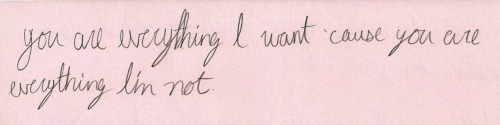 you are everything I want 'cause you are
everything I'm not.